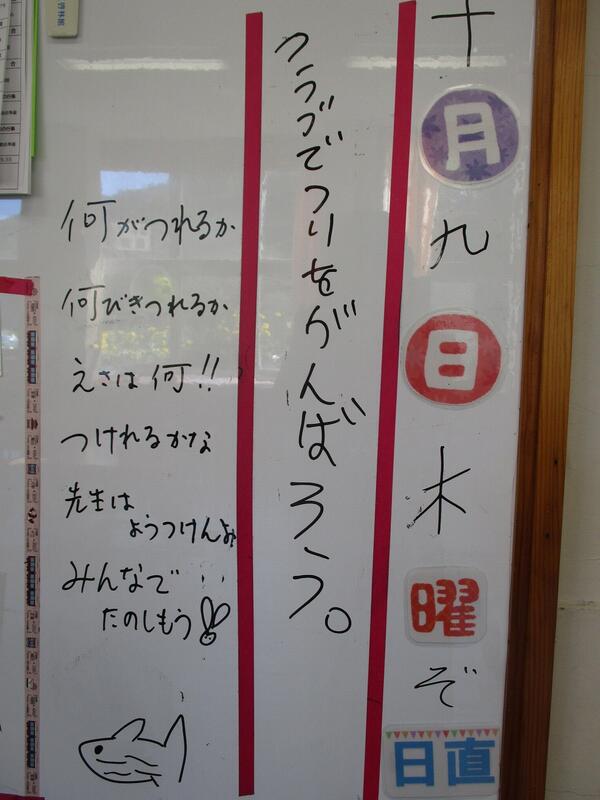 十月九日木曜ぞ
日直
クラブでつりをがんばろう。
何がつれるか
何びきつれるか
えさは何!!
つけれるかな
先生は
ようつけんよ
みんなで
たのしもう!!